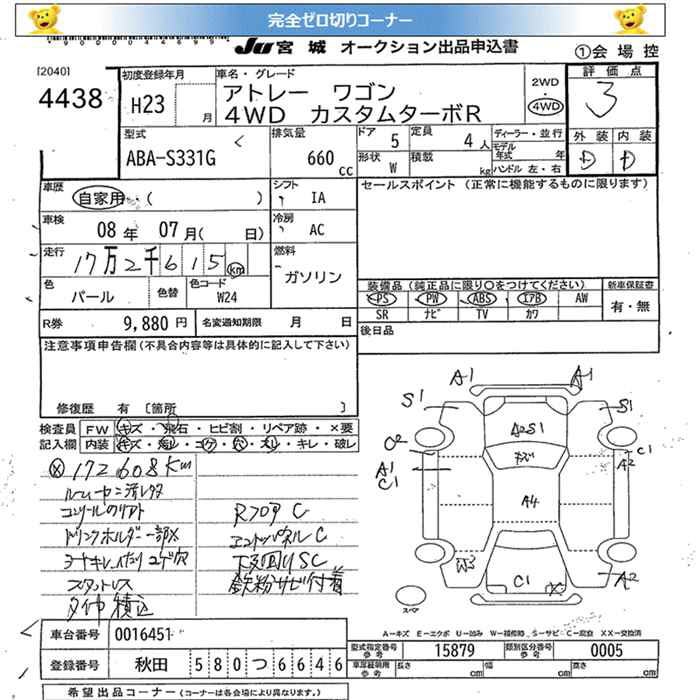 完全ゼロ切りコーナー
JU 宮城 オークション出品申込書
①会場控
[2040]
4438
初度登録年月
H23 月
車名・グレード
アトレー ワゴン
4WD カスタムターボR
2WD
4WD
評価点
3
外装 内装
D D
型式
ABA-S331G
排気量
660 cc
ドア 5
定員 4人
形状 W
積載 kg
ディーラー・並行
モデル年式 年
ハンドル 左・右
車歴
自家用・( )
シフト
IA
セールスポイント (正常に機能するものに限ります)
車検
08年 07月( 日)
冷房
AC
走行
17万2千615km
燃料
ガソリン
色
パール
色替
色コード
W24
装備品 (純正品に限り○をつけてください)
PS PW ABS エアB AW
SR ナビ TV カワ
新車保証書
有・無
R券 9,880円
名変通知期限 月 日
後日品
注意事項申告欄(不具合内容等は具体的に記入して下さい)
修復歴 有 〔箇所 〕
検査員
記入欄
FW キズ・飛石・ヒビ割・リペア跡・×要
内装 キズ・汚レ・コゲ・穴・スレ・キレ・破レ
172608Km
コンソールのリアト
ドリンクホルダー一部×
スタットレス
タイヤ積込
Rフロア C
エンドパネル C
下廻り SC
鉄粉サビ付着
A1
A1
S1
S1
A2S1
キズ
C1
A2
A1
C1
A4
W3
C1
×
A2
スペア
A-キズ E-エクボ U-凹み W-補修跡 S-サビ C-腐食 XX-交換済
車台番号 0016451
登録番号 秋田 580 つ 6646
型式指定番号 参考 15879
類別区分番号 参考 0005
車庫証明用 参考 長さ cm 幅 cm 高さ cm
希望出品コーナー (コーナーは各会場により異なります。)